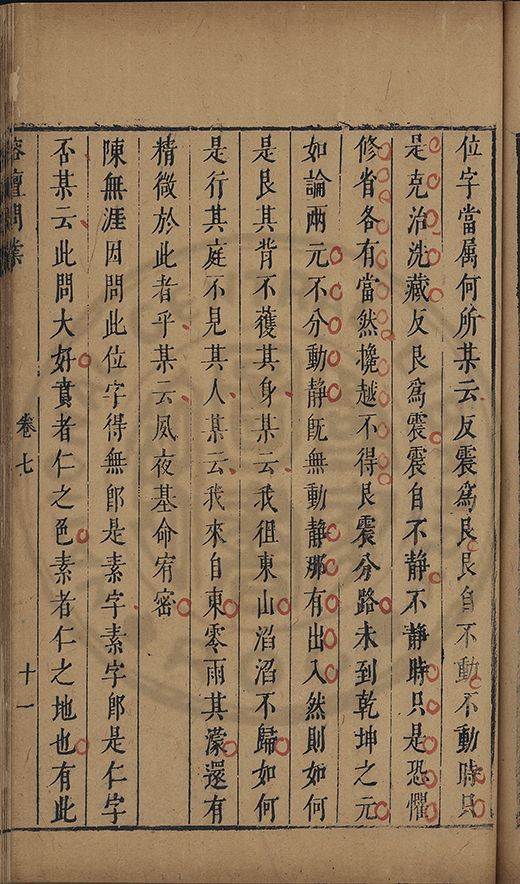 位字當属何所某云反震爲艮艮自不動不動時只
是克治洗藏反艮爲震震自不静不静時只是恐懼
修省各有當然攙越不得艮震分路未到乾坤之元
如論兩元不分動静旣無動静那有出入然則如何
是艮其背不獲其身某云我徂東山滔滔不歸如何
是行其庭不見其人某云我來自東零雨其濛還有
精微於此者乎某云夙夜基命宥密
陳無涯因問此位字得無卽是素字素字卽是仁字
否某云此問大好賁者仁之色素者仁之地也有此
榕壇問業
卷七
十一